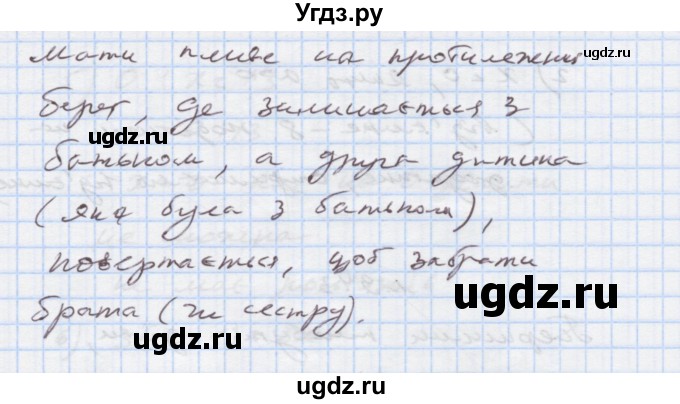 Угдз.ру
Мати пливе на протилежний
ugdz.ru
берег, де залишається з
ugdz.ru
батьком, а друга дитина
(яка була з батьком),
повертається, щоб забрати
ugdz.ru
брата (чи сестру).
ugdz.ru
ugdz.ru